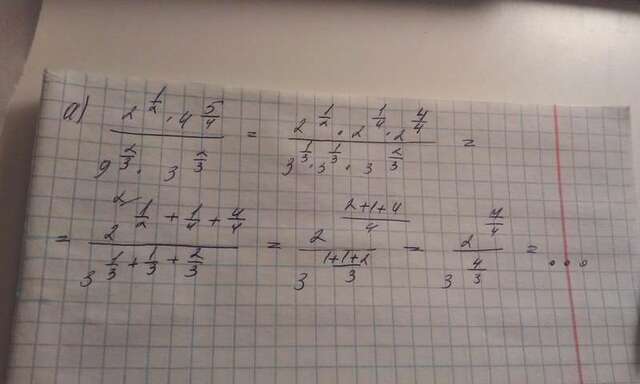 а) \frac{2^{\frac{1}{2}} \cdot 4^{\frac{5}{4}}}{9^{\frac{2}{3}} \cdot 3^{\frac{2}{3}}} = \frac{2^{\frac{1}{2}} \cdot 2^{\frac{1}{4}} \cdot 2^{\frac{4}{4}}}{3^{\frac{1}{3}} \cdot 3^{\frac{1}{3}} \cdot 3^{\frac{2}{3}}} =
= \frac{2^{\frac{1}{2} + \frac{1}{4} + \frac{4}{4}}}{3^{\frac{1}{3} + \frac{1}{3} + \frac{2}{3}}} = \frac{2^{\frac{2+1+4}{4}}}{3^{\frac{1+1+2}{3}}} = \frac{2^{\frac{7}{4}}}{3^{\frac{4}{3}}} = ...